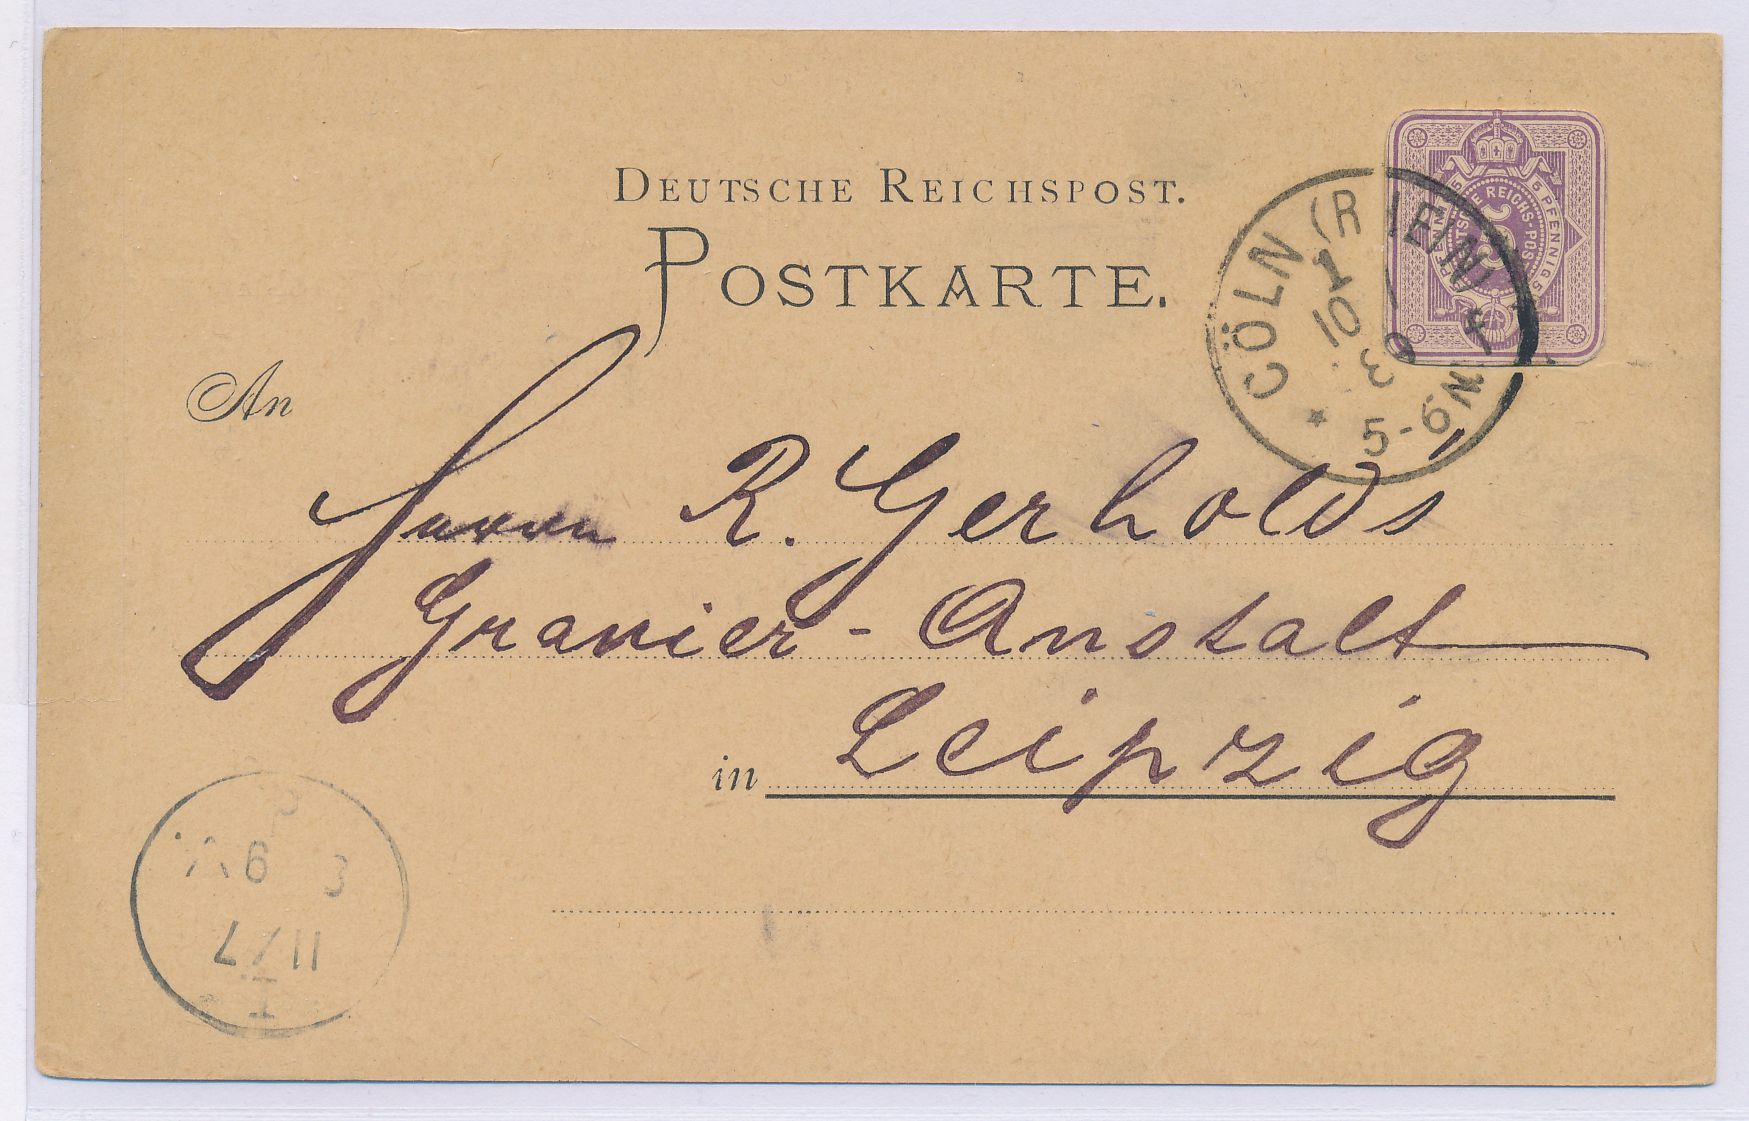 DEUTSCHE REICHSPOST.
POSTKARTE.
5 PFENNIG 5
REICHS-POST
5
CÖLN (RHEIN)
1
10
5-6N
An
Herrn R. Gerhold's
Gravier-Anstalt
in Leipzig
9 V. 3
11/7
I